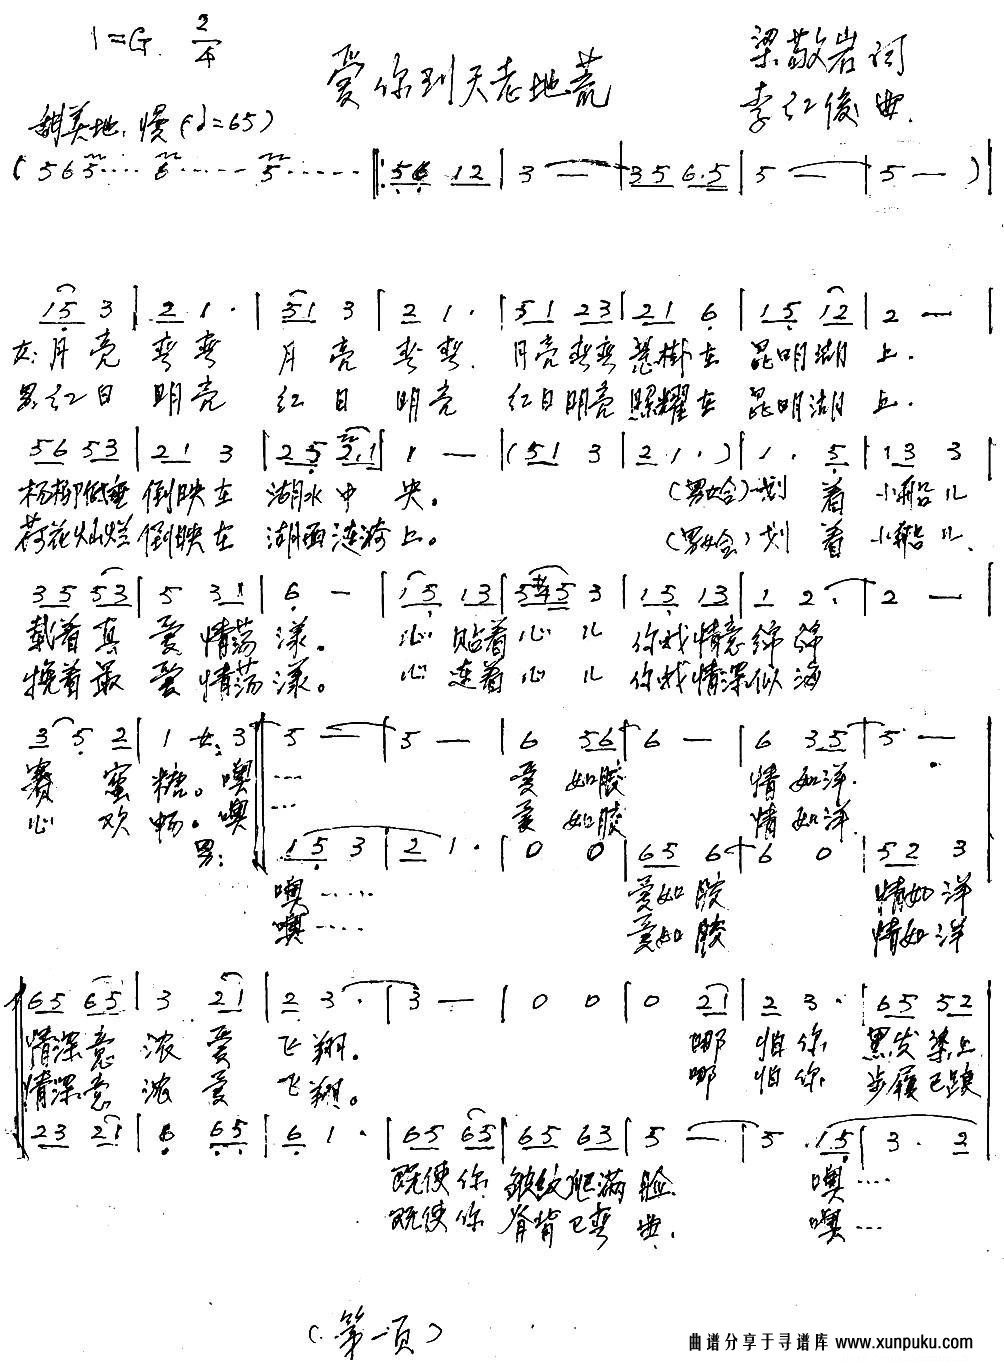 1=G 2/4
爱你到天老地荒
梁敬岩 词
李红俊 曲
甜美地、慢 (♩=65)
( 5 6 5 ···· 6 ······ 5 ······ |: 56 12 | 3 — | 35 6.5 | 5 — | 5 — ) |
15 3 | 2 1 · | 51 3 | 2 1 · | 51 23 | 21 6 | 15 12 | 2 — |
女:月亮 弯弯 月亮 弯弯. 月亮弯弯 悬掛在 昆明湖 上.
男:红日 明亮 红日 明亮 红日明亮 照耀在 昆明湖 上.
56 53 | 21 3 | 25 2.1 | 1 — | (51 3 | 2 1 · ) | 1 · 5 | 13 3 |
杨柳低垂 倒映在 湖水中 央。 (男女合)划 着 小船儿
荷花灿烂 倒映在 湖面涟漪 上。 (男女合)划 着 小船儿.
35 53 | 5 31 | 6 — | 15 13 | 5#45 3 | 15 13 | 1 2 · | 2 — |
载着真 爱 情荡 漾。 心 贴着 心 儿 你我情意 绵 绵
挽着最 爱 情荡 漾。 心 连着 心 儿 你我情深 似 海
3 5 2 | 1 女: 3 | 5 — | 5 — | 6 56 | 6 — | 6 35 | 5 — |
赛 蜜 糖。噢 ···· 爱 如胶 情 如洋.
心 欢 畅。噢 ···· 爱 如胶 情 如洋.
男: 15 3 | 2 1 · | 0 0 | 65 6 | 6 0 | 52 3 |
噢 ···· 爱如 胶 情如 洋
噢 ···· 爱如 胶 情如 洋
65 65 | 3 21 | 2 3 · | 3 — | 0 0 | 0 21 | 2 3 · | 65 52 |
情深意 浓 爱 飞 翔。 哪 怕 你 黑发染上
情深意 浓 爱 飞 翔。 哪 怕 你 步履已踉
23 21 | 6 65 | 6 1 · | 65 65 | 65 63 | 5 — | 5 · 15 | 3 · 2 |
既使你 皱纹爬满 脸. 噢 ····
既使你 脊背已弯 曲. 噢 ···
(第一页)
曲谱分享于寻谱库 www.xunpuku.com